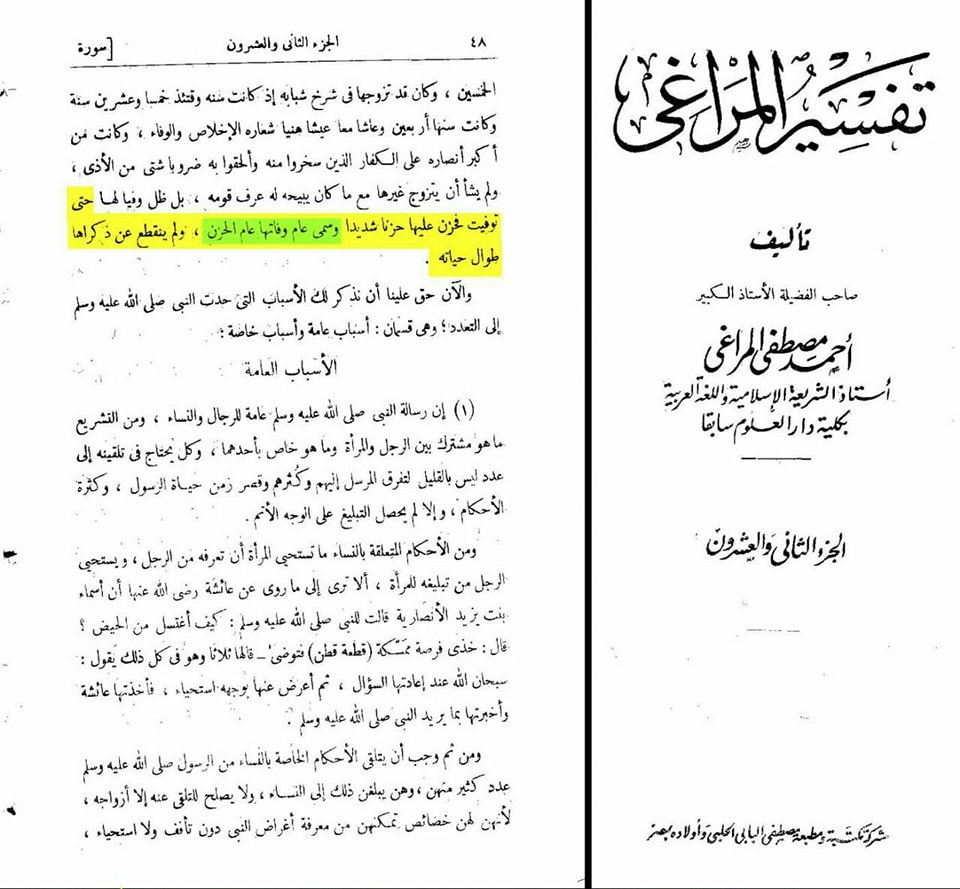 ٤٨
الجزء الثانى والعشرون
[سورة
الخمسين ، وكان قد تزوجها فى شرخ شبابه إذ كانت سنه وقتئذ خمسا وعشرين سنة
وكانت سنها أربعين وعاشا معا عيشا هنيا شعاره الإخلاص والوفاء ، وكانت من
أكبر أنصاره على الكفار الذين سخروا منه وألحقوا به ضروبا شتى من الأذى ،
ولم يشأ أن يتزوج غيرها مع ما كان يبيحه له عرف قومه ، بل ظل وفيا لها حتى
توفيت فحزن عليها حزنا شديدا وسمى عام وفاتها عام الحزن ، ولم ينقطع عن ذكراها
طوال حياته .
والآن حق علينا أن نذكر لك الأسباب التى حدت النبى صلى الله عليه وسلم
إلى التعدد ؛ وهى قسمان : أسباب عامة وأسباب خاصة :
الأسباب العامة
(١) إن رسالة النبى صلى الله عليه وسلم عامة للرجال والنساء ، ومن التشريع
ما هو مشترك بين الرجل والمرأة وما هو خاص بأحدهما ، وكل يحتاج فى تلقينه إلى
عدد ليس بالقليل لتفرق المرسل إليهم وكثرهم وقصر زمن حياة الرسول ، وكثرة
الأحكام ، وإلا لم يحصل التبليغ على الوجه الأتم .
ومن الأحكام المتعلقة بالنساء ما تستحيى المرأة أن تعرفه من الرجل ، ويستحيى
الرجل من تبليغه للمرأة ، ألا ترى إلى ما روى عن عائشة رضى الله عنها أن أسماء
بنت يزيد الأنصارية قالت للنبى صلى الله عليه وسلم : كيف أغتسل من الحيض ؟
قال : خذى فرصة ممسّكة (قطعة قطن) فتوضئ – قالها ثلاثا وهو فى كل ذلك يقول :
سبحان الله عند إعادتها السؤال ، ثم أعرض عنها بوجهه استحياء ، فأخذتها عائشة
وأخبرتها بما يريد النبى صلى الله عليه وسلم .
ومن ثم وجب أن يتلقى الأحكام الخاصة بالنساء من الرسول صلى الله عليه وسلم
عدد كثير منهن ، وهن يبلغن ذلك إلى النساء ، ولا يصلح للتلقى عنه إلا أزواجه ،
لأنهن لهن خصائص تمكنهن من معرفة أغراض النبى دون تأفف ولا استحياء ،
تفسير المراغى
تأليف
صاحب الفضيلة الأستاذ الكبير
أحمد مصطفى المراغى
أستاذ الشريعة الإسلامية واللغة العربية
بكلية دار العلوم سابقا
الجزء الثانى والعشرون
شركة مكتبة ومطبعة مصطفى البابى الحلبى وأولاده بمصر